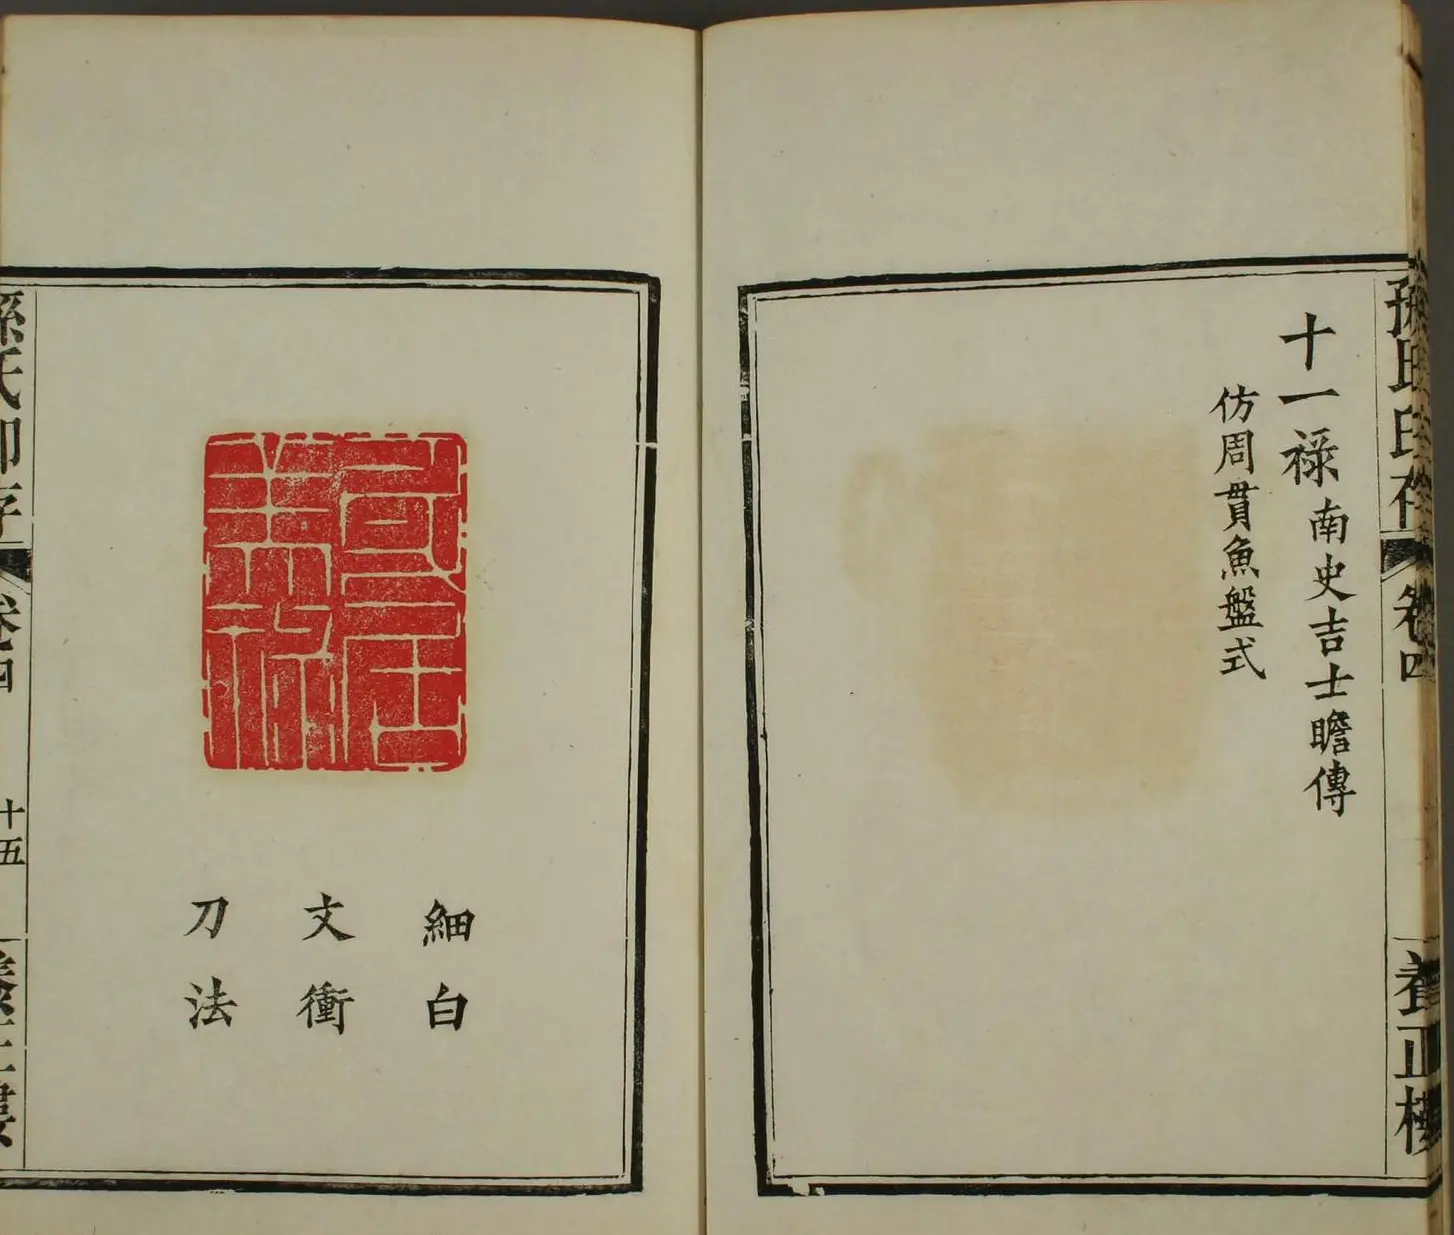 孫氏印存
卷四
養正樓
十一祿南史吉士瞻傳
仿周貫魚盤式
細白
文衝
刀法
孫氏印存
卷四
十五
養正樓